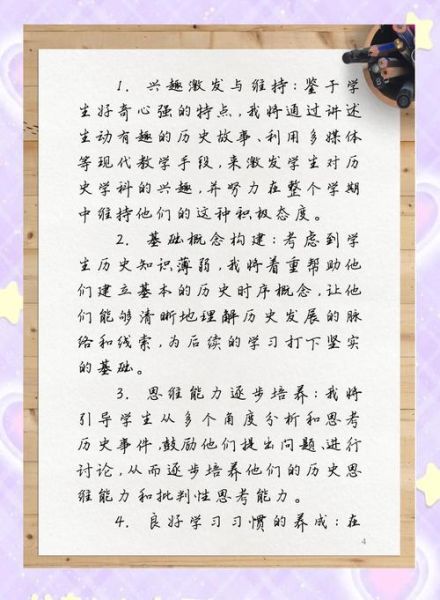 1. 兴趣激发与维持:鉴于学
生好奇心强的特点,我将通过讲述
生动有趣的历史故事、利用多媒体
等现代教学手段,来激发学生对历
史学科的兴趣,并努力在整个学期
中维持他们的这种积极态度。
2. 基础概念构建:考虑到学
生历史知识薄弱,我将着重帮助他
们建立基本的历史时序概念,让他
们能够清晰地理解历史发展的脉
络和线索,为后续的学习打下坚实
的基础。
3. 思维能力逐步培养:我将
引导学生从多个角度分析和思考
历史事件,鼓励他们提出问题、进行
讨论,从而逐步培养他们的历史思
维能力和批判性思考能力。
4. 良好学习习惯的养成:在
4